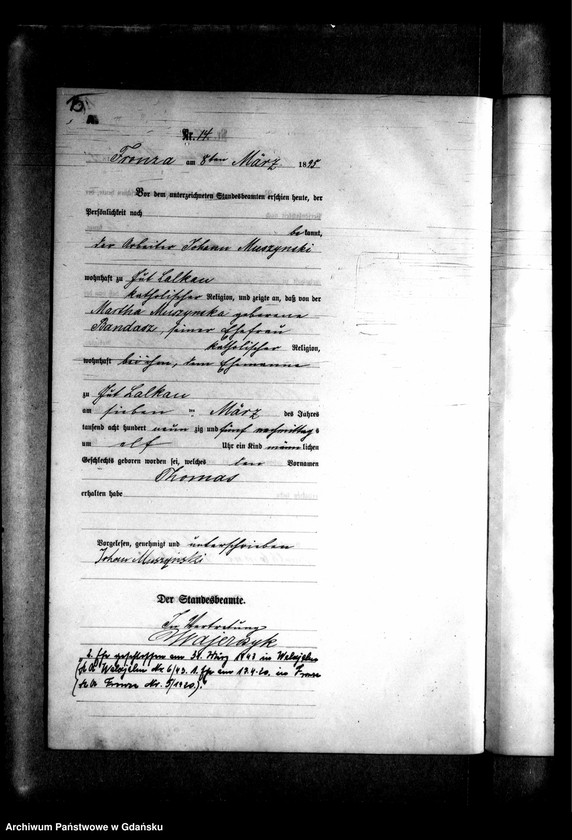 15
Nr. 14
Fronza am 8ten März 1895
Vor dem unterzeichneten Standesbeamten erschien heute, der
Persönlichkeit nach
bekannt,
der Arbeiter Johann Muszynski
wohnhaft zu Gut Lalkau
katholischer Religion, und zeigte an, daß von der
Martha Muszynska geborene
Bandasz, seiner Ehefrau
katholischer Religion,
wohnhaft bei ihm, dem Ehemanne
zu Gut Lalkau
am sieben ten März des Jahres
tausend acht hundert neun zig und fünf nachmittags
um elf Uhr ein Kind männlichen
Geschlechts geboren worden sei, welches den Vornamen
Thomas
erhalten habe
Vorgelesen, genehmigt und unterschrieben
Johan Muszyński
Der Standesbeamte.
In Vertretung
Majerczyk
2. Ehe geschlossen am 31. März 1943 in
Nr. 6/43. 1. Ehe am 19.4.20. in
Nr. 5/1920).
Archiwum Państwowe w Gdańsku